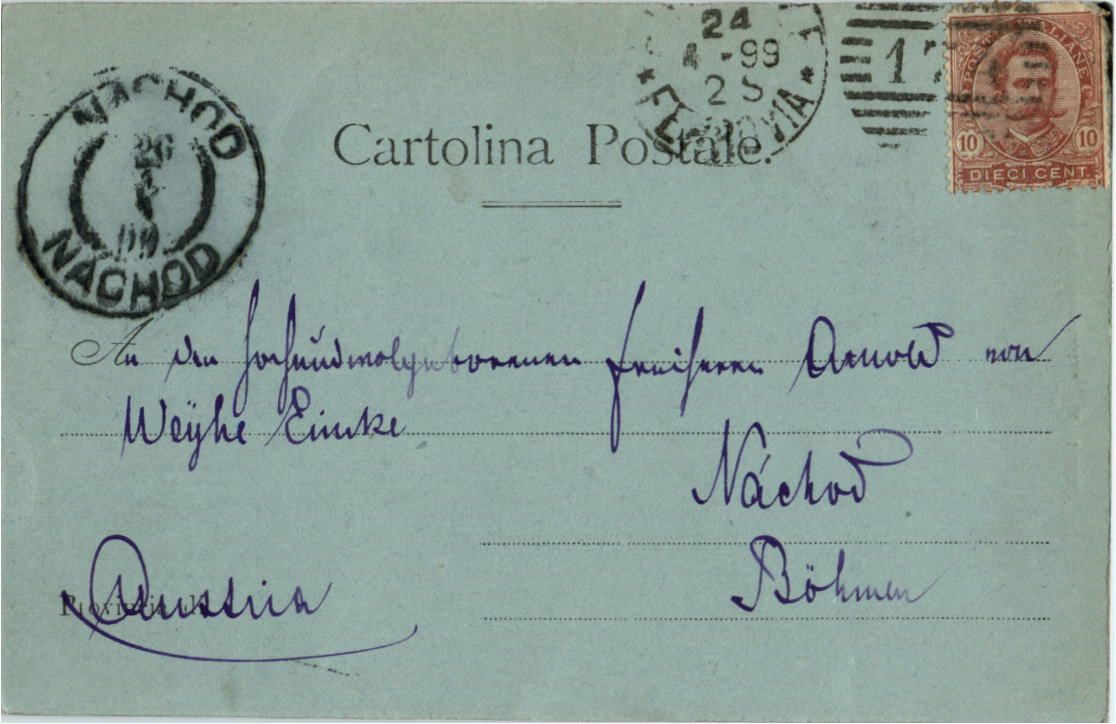 24
4 -99
2 S
* FERROVIA *
17
POSTE ITALIANE
10 10
DIECI CENT.
NÁCHOD
26
99
NACHOD
Cartolina Postale.
An den hochundwolgeborenen Freiherrn Arnold von
Weÿhe Eimke
Náchod
Böhmen
Austria